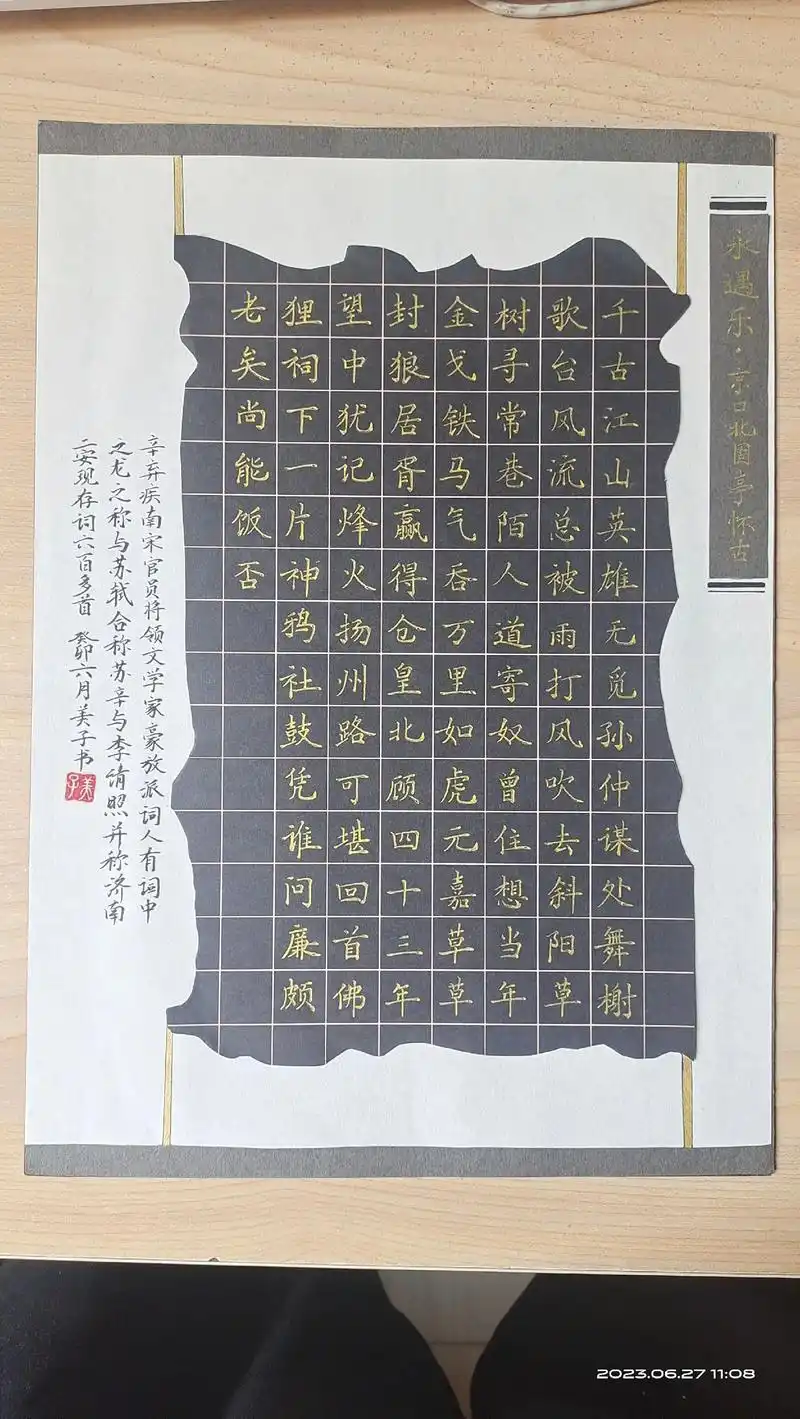 永遇乐·京口北固亭怀古
千古江山英雄无觅孙仲谋处舞榭
歌台风流总被雨打风吹去斜阳草
树寻常巷陌人道寄奴曾住想当年
金戈铁马气吞万里如虎元嘉草草
封狼居胥赢得仓皇北顾四十三年
望中犹记烽火扬州路可堪回首佛
狸祠下一片神鸦社鼓凭谁问廉颇
老矣尚能饭否
辛弃疾南宋官员将领文学家豪放派词人有词中
之龙之称与苏轼合称苏辛与李清照并称济南
二安现存词六百多首 癸卯六月美子书
美子
2023.06.27 11:08